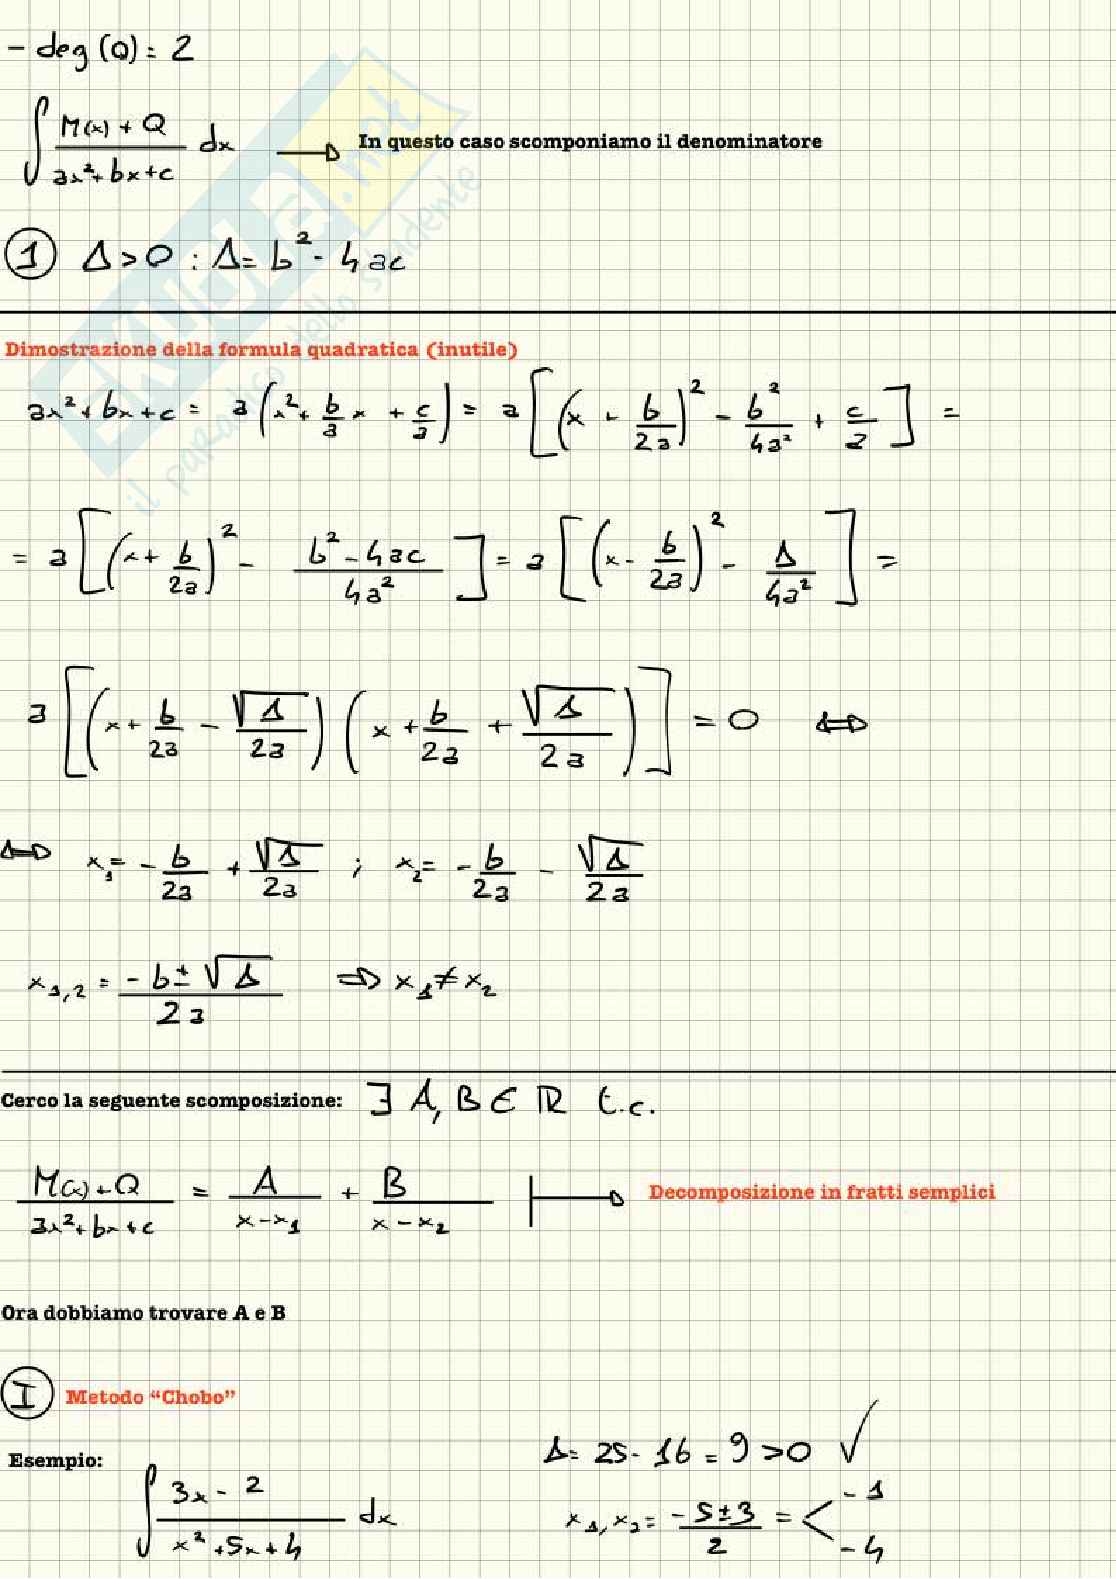 - deg (Q) = 2
∫ M(x) + Q / ax² + bx + c dx → In questo caso scomponiamo il denominatore
① Δ > 0 : Δ = b² - 4ac
Dimostrazione della formula quadratica (inutile)
ax² + bx + c = a (x² + b/a x + c/a) = a [(x - b/2a)² - b²/4a² + c/a] =
= a [(x + b/2a)² - b² - 4ac / 4a²] = a [(x - b/2a)² - Δ/4a²] =
a [(x + b/2a - √Δ/2a) (x + b/2a + √Δ/2a)] = 0 ⇔
⇔ x₁ = - b/2a + √Δ/2a ; x₂ = - b/2a - √Δ/2a
x₁,₂ = -b ± √Δ / 2a ⇒ x₁ ≠ x₂
Cerco la seguente scomposizione: ∃ A, B ∈ ℝ t.c.
M(x) + Q / ax² + bx + c = A / x - x₁ + B / x - x₂ ↦ Decomposizione in fratti semplici
Ora dobbiamo trovare A e B
Ⓘ Metodo “Chobo”
Δ = 25 - 16 = 9 > 0 √
Esempio: ∫ 3x - 2 / x² + 5x + 4 dx
x₁, x₂ = -5 ± 3 / 2 = < -1 -4
skuola.net
il paradiso dello studente